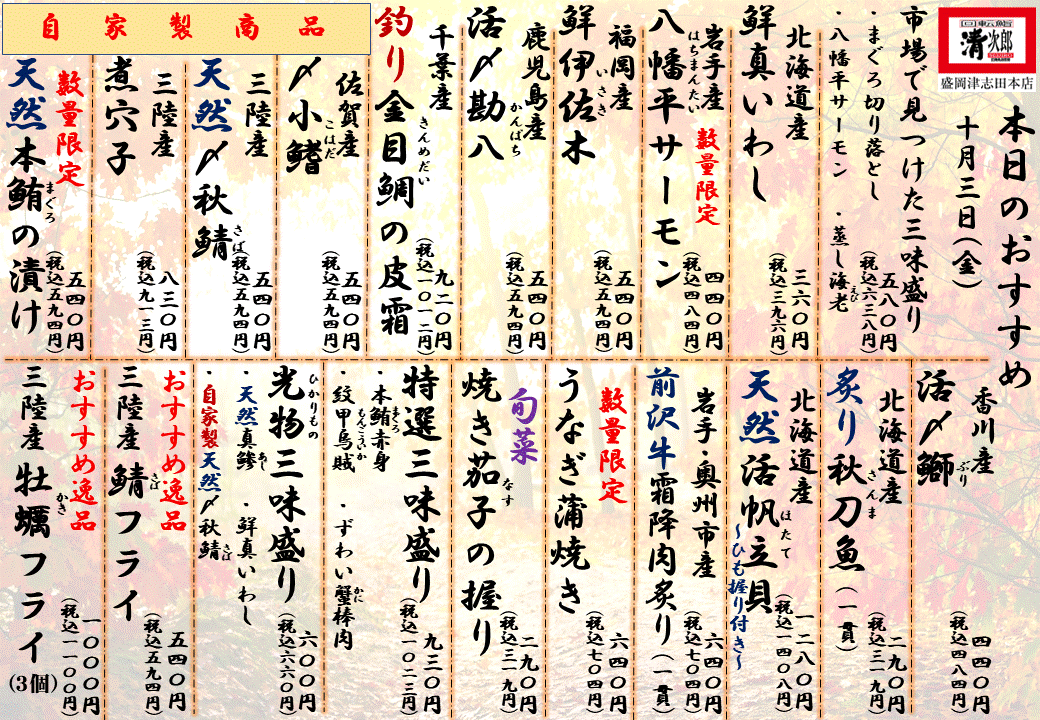 回転鮨
清次郎
盛岡津志田本店
本日のおすすめ
十月三日(金)
市場で見つけた三味盛り
・まぐろ切り落とし
・八幡平サーモン ・蒸し海老
えび
五八〇円
(税込六三八円)
北海道産
鮮真いわし
三六〇円
(税込三九六円)
岩手産
数量限定
はちまんたい
八幡平サーモン
四四〇円
(税込四八四円)
福岡産
いさき
鮮伊佐木
五四〇円
(税込五九四円)
鹿児島産
かんぱち
活〆勘八
五四〇円
(税込五九四円)
千葉産
きんめだい
釣り金目鯛の皮霜
九二〇円
(税込一〇一二円)
自家製商品
佐賀産
こはだ
〆小鰭
五四〇円
(税込五九四円)
三陸産
天然〆秋鯖
さば
五四〇円
(税込五九四円)
三陸産
煮穴子
八三〇円
(税込九一三円)
数量限定
天然本鮪の漬け
まぐろ
五四〇円
(税込五九四円)
香川産
活〆鰤
ぶり
四四〇円
(税込四八四円)
北海道産
炙り秋刀魚(一貫)
さんま
二九〇円
(税込三一九円)
北海道産
天然活帆立貝
ほたて
~ひも握り付き~
一二八〇円
(税込一四〇八円)
岩手・奥州市産
前沢牛霜降肉炙り(一貫)
六四〇円
(税込七〇四円)
数量限定
うなぎ蒲焼き
六四〇円
(税込七〇四円)
旬菜
焼き茄子の握り
なす
二九〇円
(税込三一九円)
特選三味盛り
・本鮪赤身
まぐろ
・紋甲烏賊 ・ずわい蟹棒肉
もんごういか
かに
九三〇円
(税込一〇二三円)
ひかりもの
光物三味盛り
・天然真鯵 ・鮮真いわし
あじ
・自家製天然〆秋鯖
さば
六〇〇円
(税込六六〇円)
おすすめ逸品
三陸産 鯖フライ
さば
五四〇円
(税込五九四円)
おすすめ逸品
三陸産 牡蠣フライ(3個)
かき
一〇〇〇円
(税込一一〇〇円)